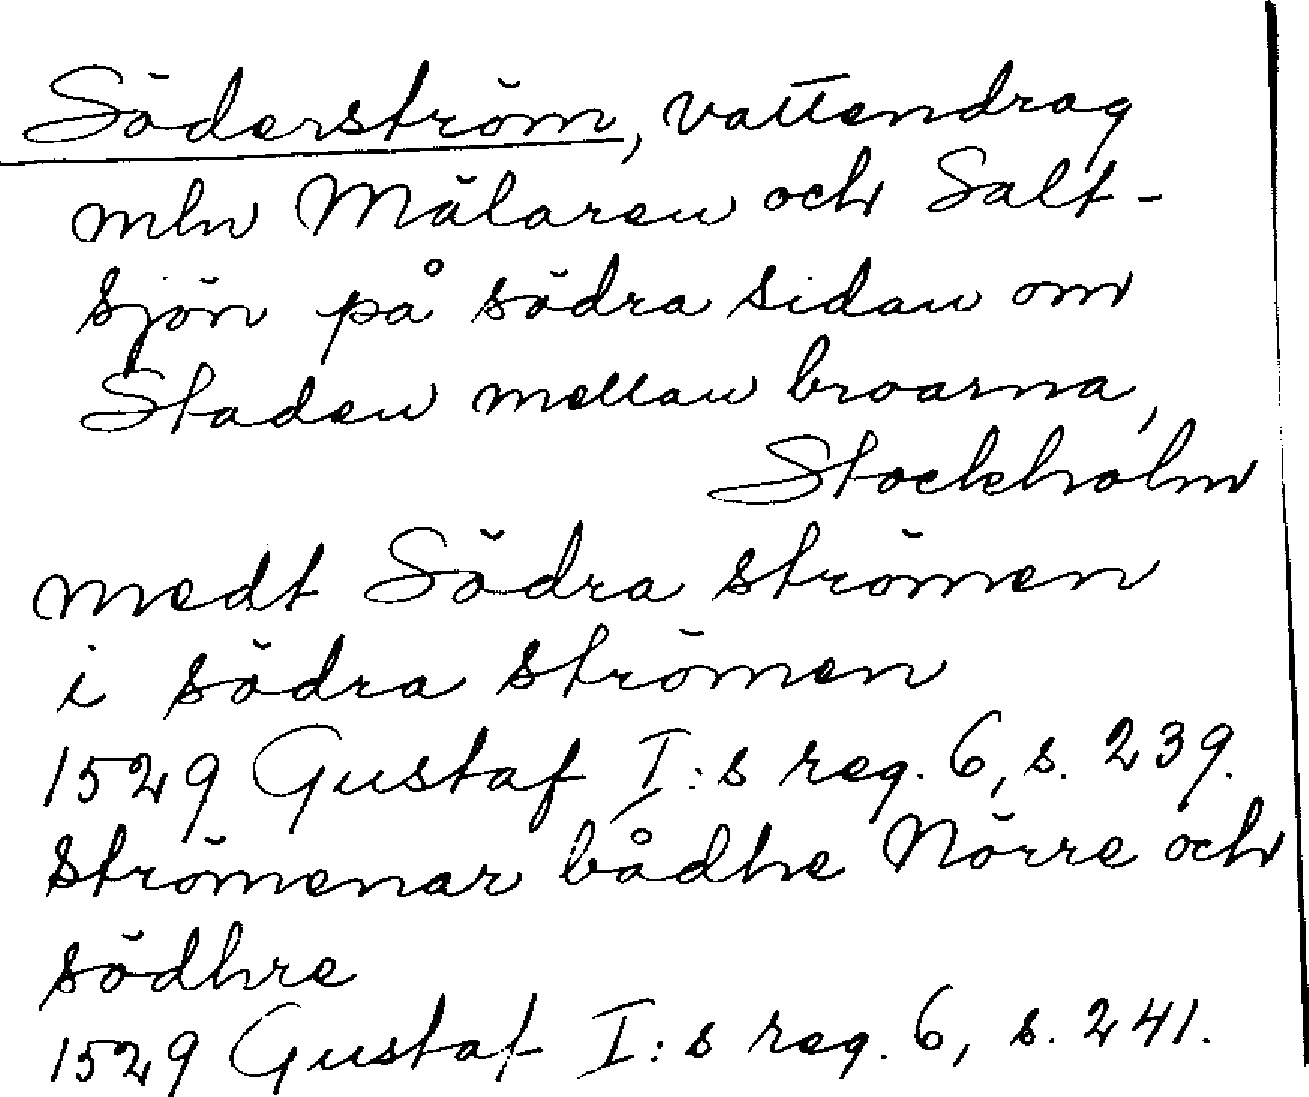 Söderström, vattendrag
mln Mälaren och Salt-
sjön på södra sidan om
Staden mellan broarna,
Stockholm
medt Södra strömen
i södra strömen
1529 Gustaf I:s reg. 6, s. 239.
strömenar bådhe Nörre och
södhre
1529 Gustaf I:s reg. 6, s. 241.